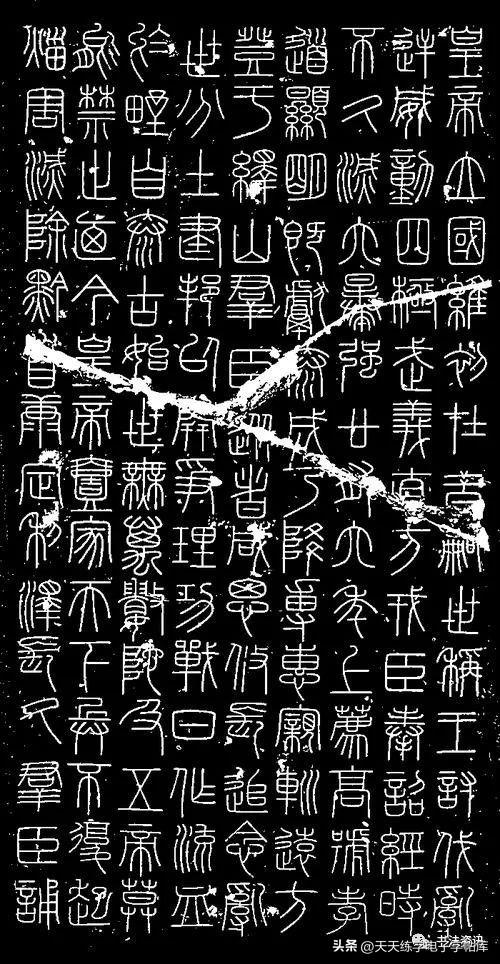 皇帝立國維初在昔嗣世稱王討伐亂
逆威動四極武義直方戎臣奉詔經時
不久滅六暴強廿有六年上薦高號孝
道顯明既獻泰成乃降專惠親巡遠方
登于繹山羣臣從者咸思攸長追念亂
世分土建邦以開爭理功戰日作流血
於野自泰古始世無萬數陀及五帝莫
能禁止迺今皇帝壹家天下兵不復起
災害滅除黔首康定利澤長久羣臣誦
书法资讯
头条 @天天练字电子字帖库